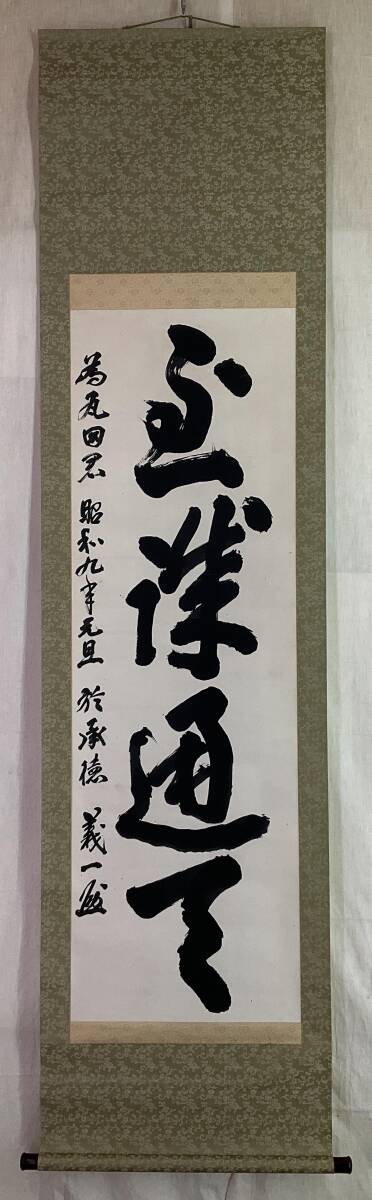 至誠通天
為瓦田君 昭和九年元旦 於承徳 義一